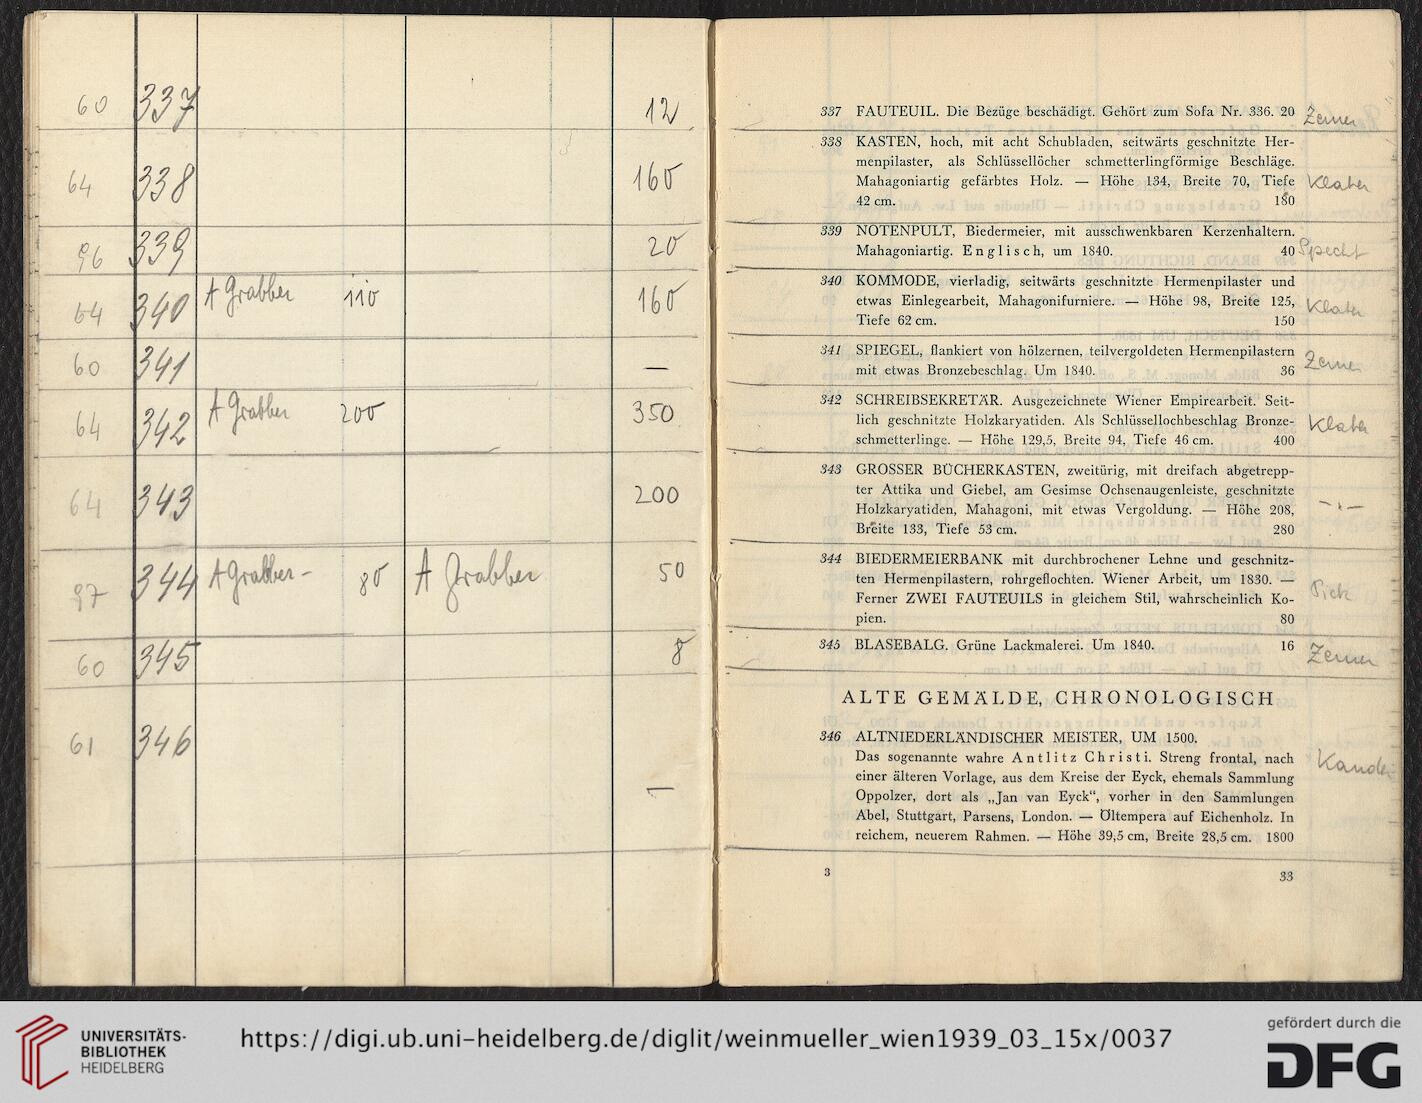 60 337 12
64 338 160
96 339 20
64 340 A Grabber 110 160
60 341 —
64 342 A Grabber 200 350
64 343 200
97 344 A Grabber - 80 A Grabber 50
60 345 8
61 346 —
337 FAUTEUIL. Die Bezüge beschädigt. Gehört zum Sofa Nr. 336. 20
338 KASTEN, hoch, mit acht Schubladen, seitwärts geschnitzte Her-
menpilaster, als Schlüssellöcher schmetterlingförmige Beschläge.
Mahagoniartig gefärbtes Holz. — Höhe 134, Breite 70, Tiefe
42 cm. 180
339 NOTENPULT, Biedermeier, mit ausschwenkbaren Kerzenhaltern.
Mahagoniartig. Englisch, um 1840. 40 Specht
340 KOMMODE, vierladig, seitwärts geschnitzte Hermenpilaster und
etwas Einlegearbeit, Mahagonifurniere. — Höhe 98, Breite 125,
Tiefe 62 cm. 150
341 SPIEGEL, flankiert von hölzernen, teilvergoldeten Hermenpilastern
mit etwas Bronzebeschlag. Um 1840. 36
342 SCHREIBSEKRETÄR. Ausgezeichnete Wiener Empirearbeit. Seit-
lich geschnitzte Holzkaryatiden. Als Schlüssellochbeschlag Bronze-
schmetterlinge. — Höhe 129,5, Breite 94, Tiefe 46 cm. 400
343 GROSSER BÜCHERKASTEN, zweitürig, mit dreifach abgetrepp-
ter Attika und Giebel, am Gesimse Ochsenaugenleiste, geschnitzte
Holzkaryatiden, Mahagoni, mit etwas Vergoldung. — Höhe 208,
Breite 133, Tiefe 53 cm. 280
344 BIEDERMEIERBANK mit durchbrochener Lehne und geschnitz-
ten Hermenpilastern, rohrgeflochten. Wiener Arbeit, um 1830. —
Ferner ZWEI FAUTEUILS in gleichem Stil, wahrscheinlich Ko-
pien. 80
345 BLASEBALG. Grüne Lackmalerei. Um 1840. 16
ALTE GEMÄLDE, CHRONOLOGISCH
346 ALTNIEDERLÄNDISCHER MEISTER, UM 1500.
Das sogenannte wahre Antlitz Christi. Streng frontal, nach
einer älteren Vorlage, aus dem Kreise der Eyck, ehemals Sammlung
Oppolzer, dort als „Jan van Eyck“, vorher in den Sammlungen
Abel, Stuttgart, Parsens, London. — Öltempera auf Eichenholz. In
reichem, neuerem Rahmen. — Höhe 39,5 cm, Breite 28,5 cm. 1800
3 33
UNIVERSITÄTS-
BIBLIOTHEK
HEIDELBERG
https://digi.ub.uni-heidelberg.de/diglit/weinmueller_wien1939_03_15x/0037
gefördert durch die
DFG